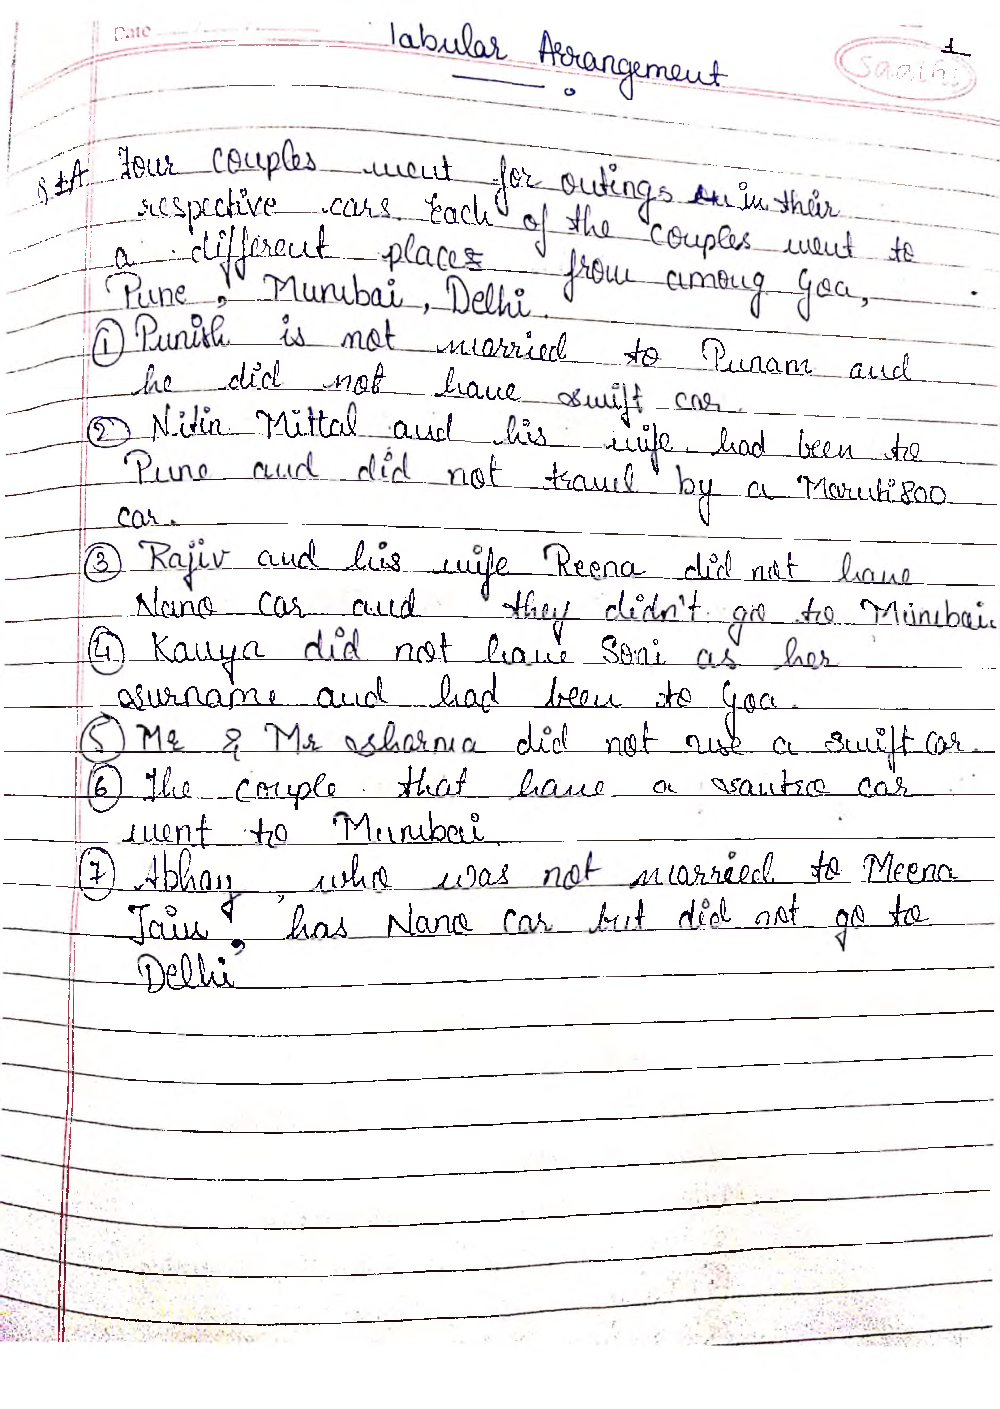 Date
Tabular Arrangement
1
Saathi
Q.1A Four couples went for outings in their
respective cars. Each of the couples went to
a different places from among Goa,
Pune, Mumbai, Delhi.
① Punish is not married to Punam and
he did not have swift car.
② Nitin Mittal and his wife had been to
Pune and did not travel by a Maruti 800
car.
③ Rajiv and his wife Reena did not have
Nano car and they didn't go to Mumbai.
④ Kavya did not have Soni as her
surname and had been to Goa.
⑤ Mr & Mr sharma did not use a swift car.
⑥ The couple that have a santro car
went to Mumbai
⑦ Abhay, who was not married to Meena
Jain, has Nano car but did not go to
Delhi